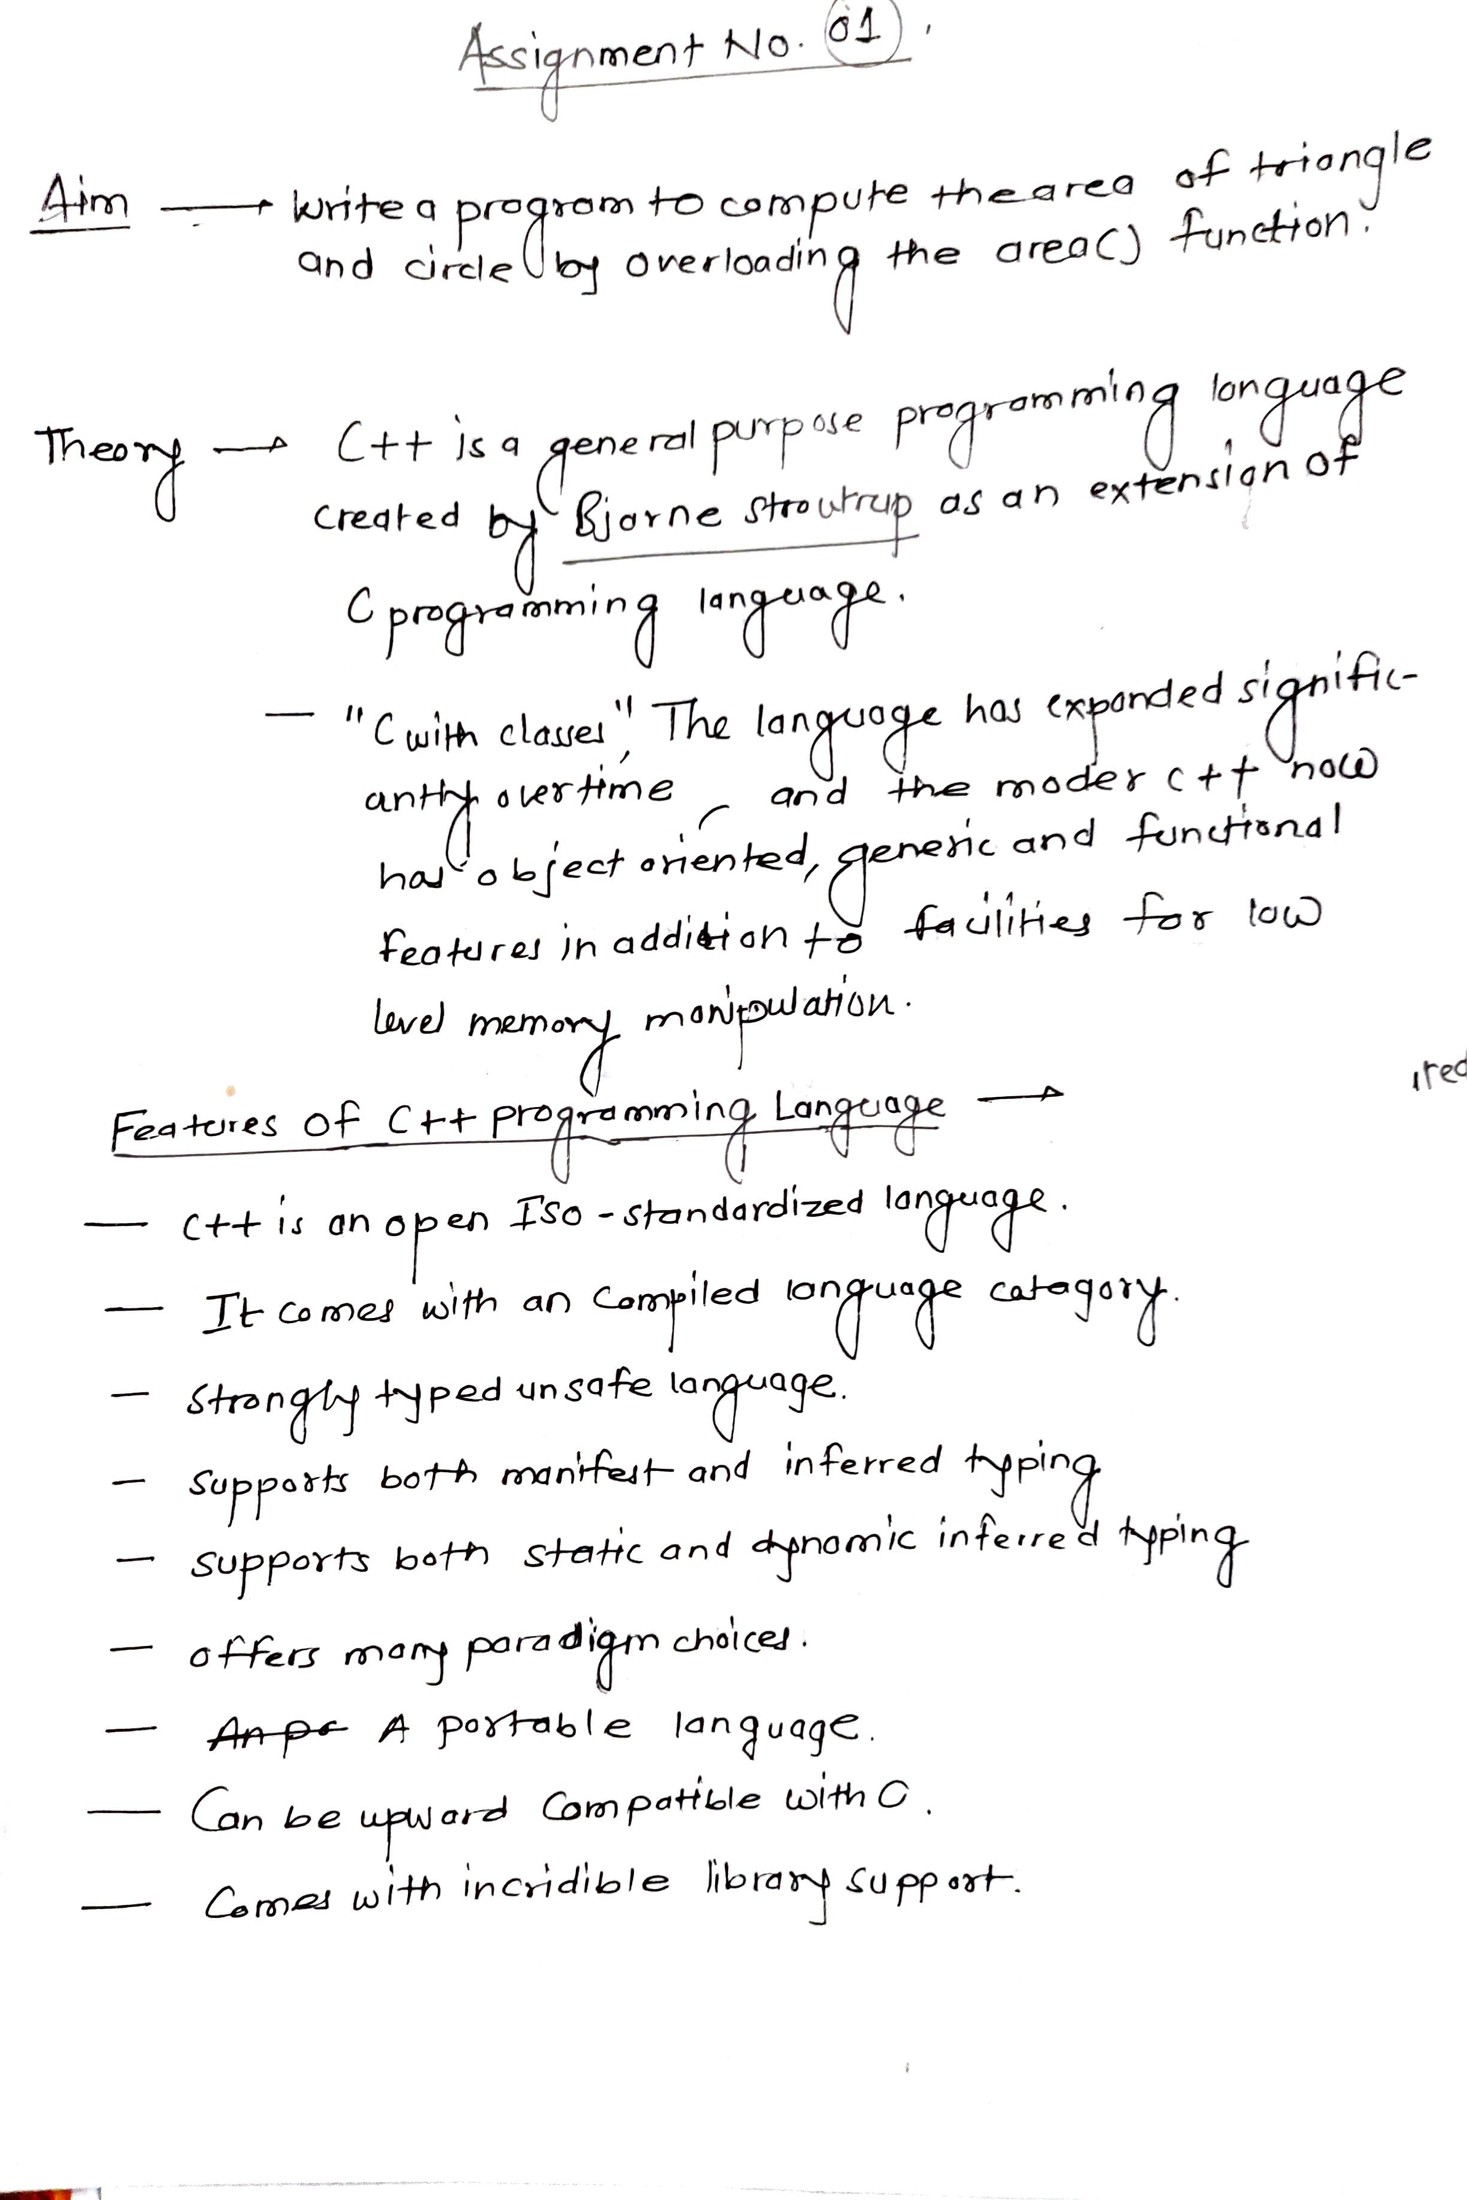 Assignment No. 01.
Aim → Write a program to compute the area of triangle
and circle by overloading the area() function.
Theory → C++ is a general purpose programming language
created by Bjarne stroutrup as an extension of
C programming language.
— "C with classes", The language has expanded signific-
antly over time, and the moder c++ now
has object oriented, generic and functional
features in addition to facilities for low
level memory manipulation.
ired
Features of C++ programming Language →
— C++ is an open ISO-standardized language.
— It comes with an compiled language catagory.
— Strongly typed unsafe language.
— supports both manifest and inferred typing
— supports both static and dynamic inferred typing
— offers many paradigm choices.
— An po A portable language.
— Can be upward compatible with C.
— Comes with incridible library support.